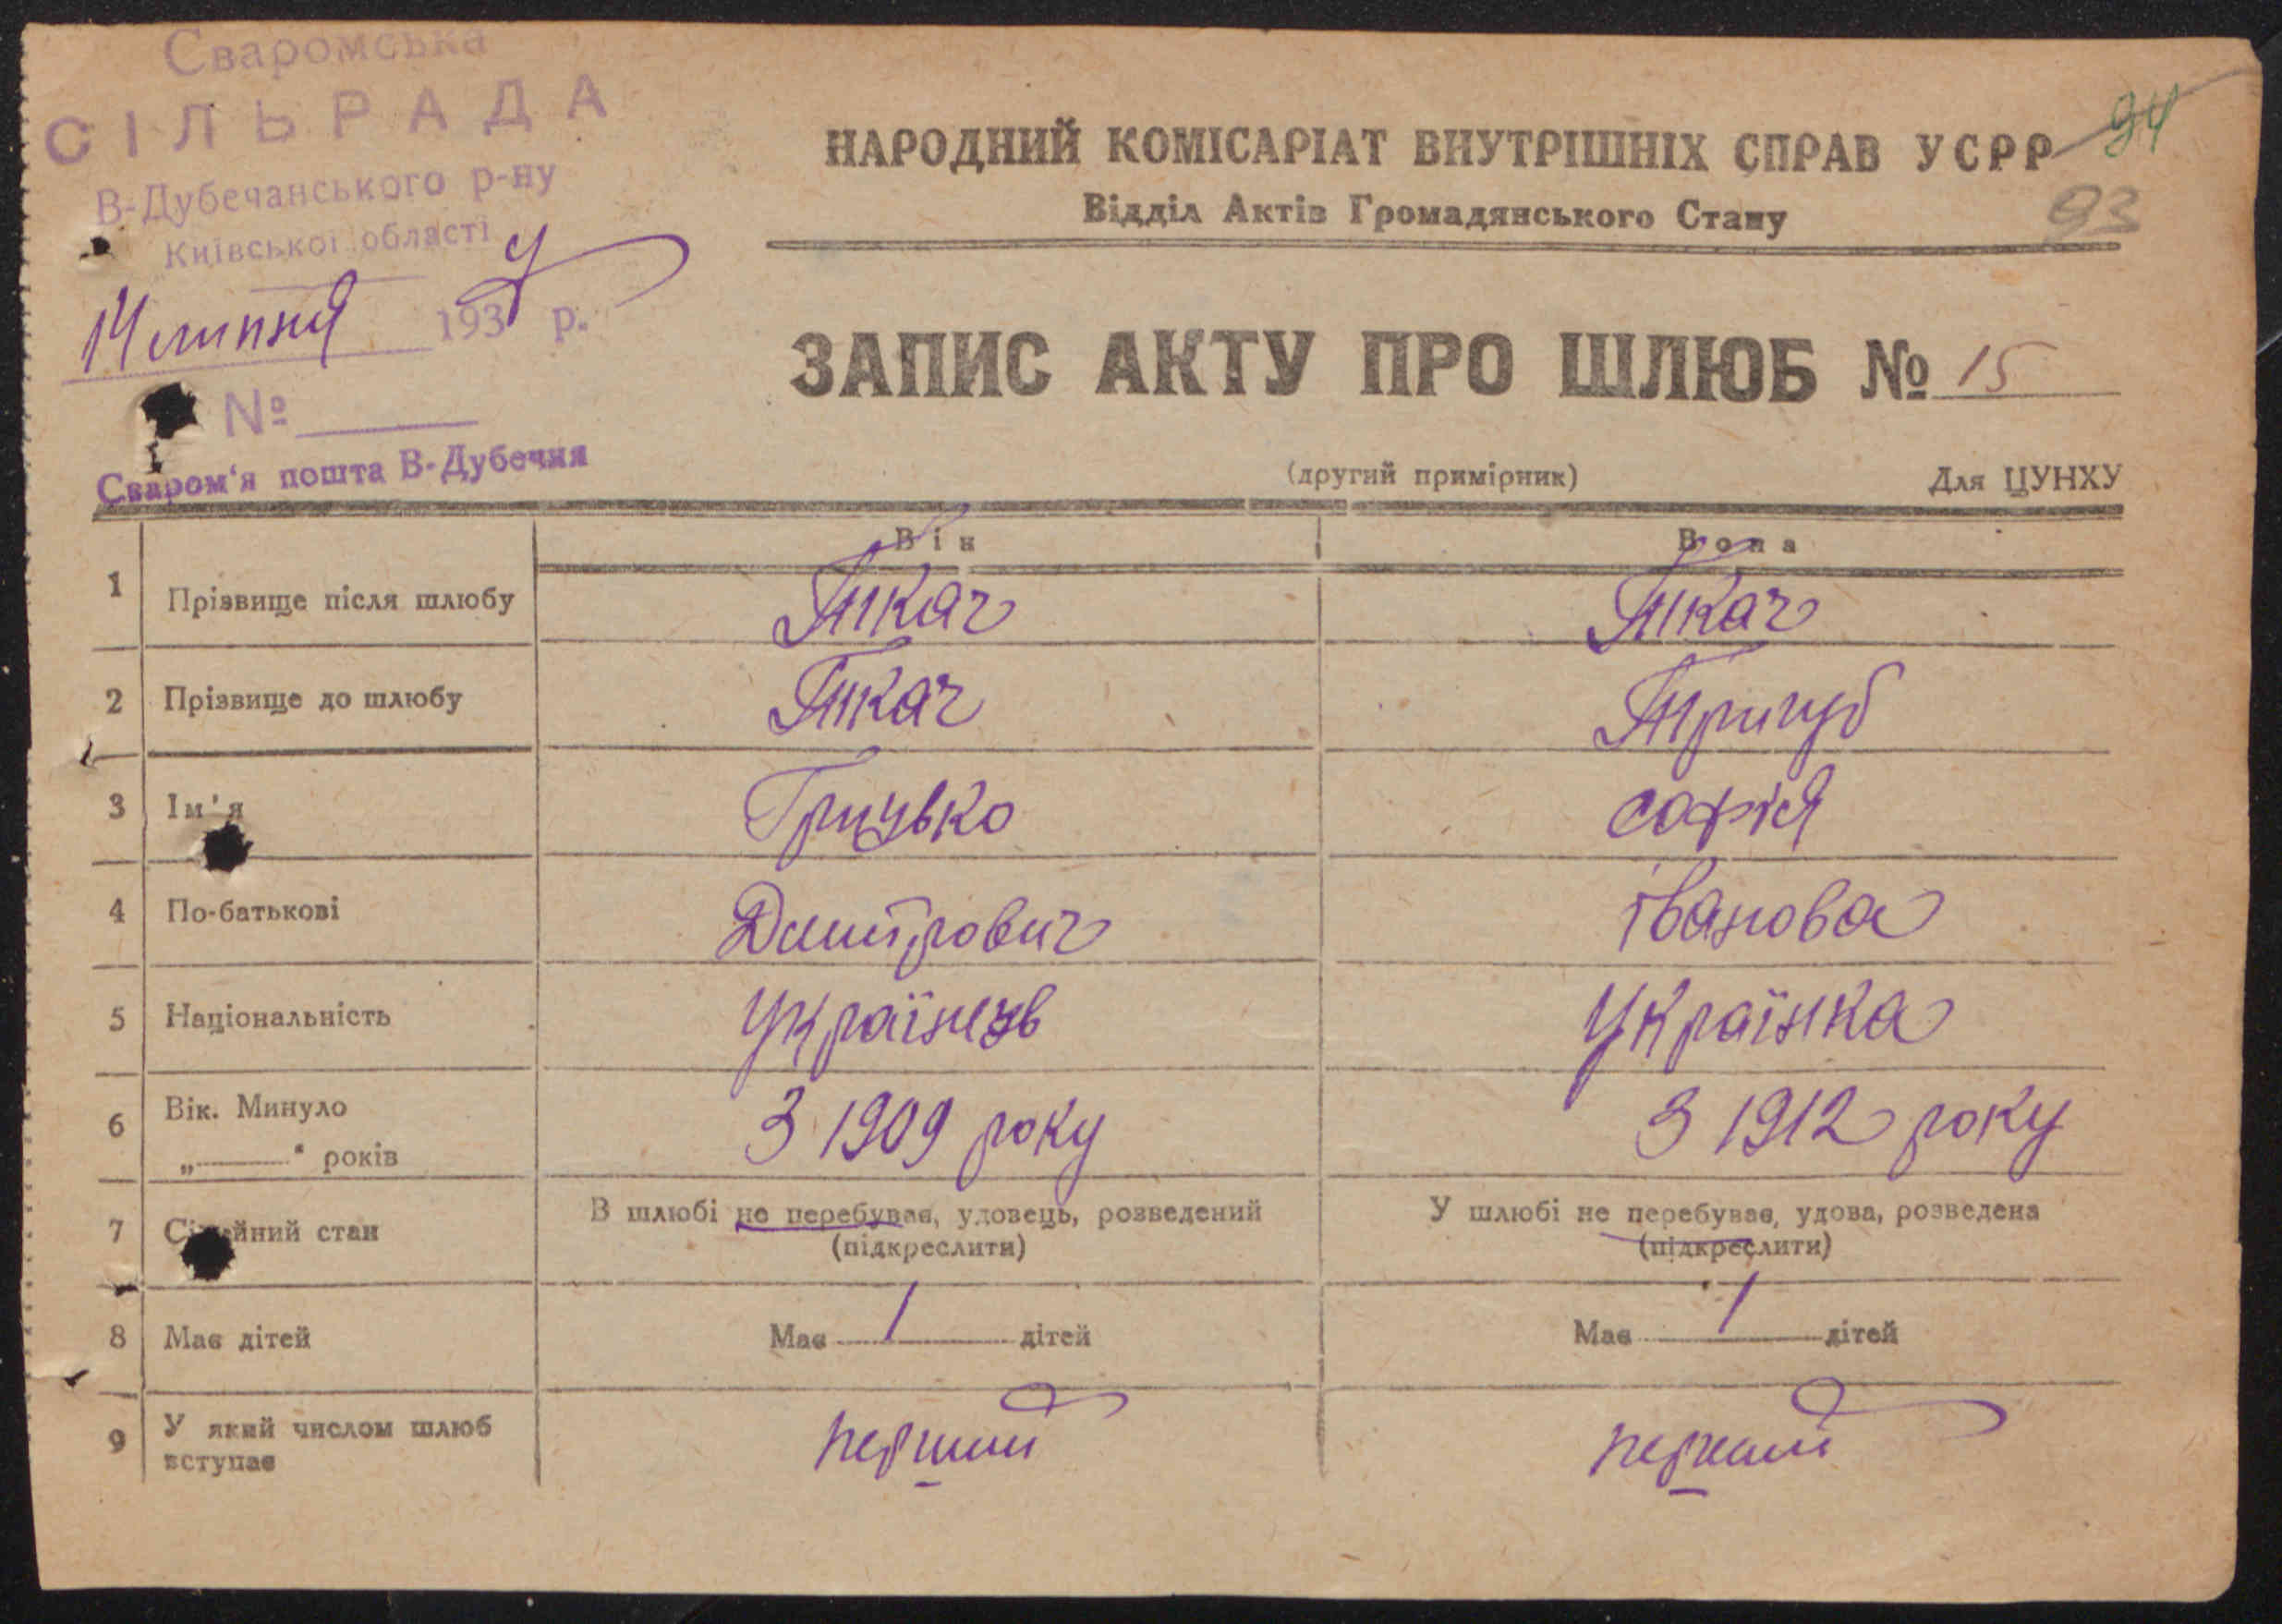 Сваромська
СІЛЬРАДА
В-Дубечанського р-ну
Київської області
14 липня 193 р.
№
Сваром'я пошта В-Дубечня
94
НАРОДНИЙ КОМІСАРІАТ ВНУТРІШНІХ СПРАВ УСРР
Відділ Актів Громадянського Стану
93
ЗАПИС АКТУ ПРО ШЛЮБ № 15
(другий примірник) Для ЦУНХУ
Він Вона
1 Прізвище після шлюбу Ткач Ткач
2 Прізвище до шлюбу Ткач Тригуб
3 Ім'я Грицько софія
4 По-батькові Дмитрович івановa
5 Національність Українець Українка
6 Вік. Минуло „——“ років З 1909 року З 1912 року
7 Сімейний стан В шлюбі не перебуває, удовець, розведений У шлюбі не перебуває, удова, розведена
(підкреслити) (підкреслити)
8 Має дітей Має / дітей Має / дітей
9 У який числом шлюб перший перший
вступає